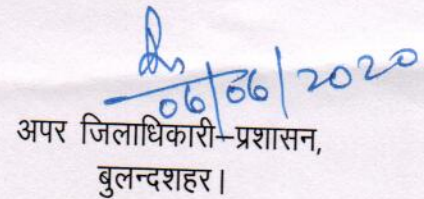 06/06/2020
अपर जिलाधिकारी–प्रशासन,
बुलन्दशहर।